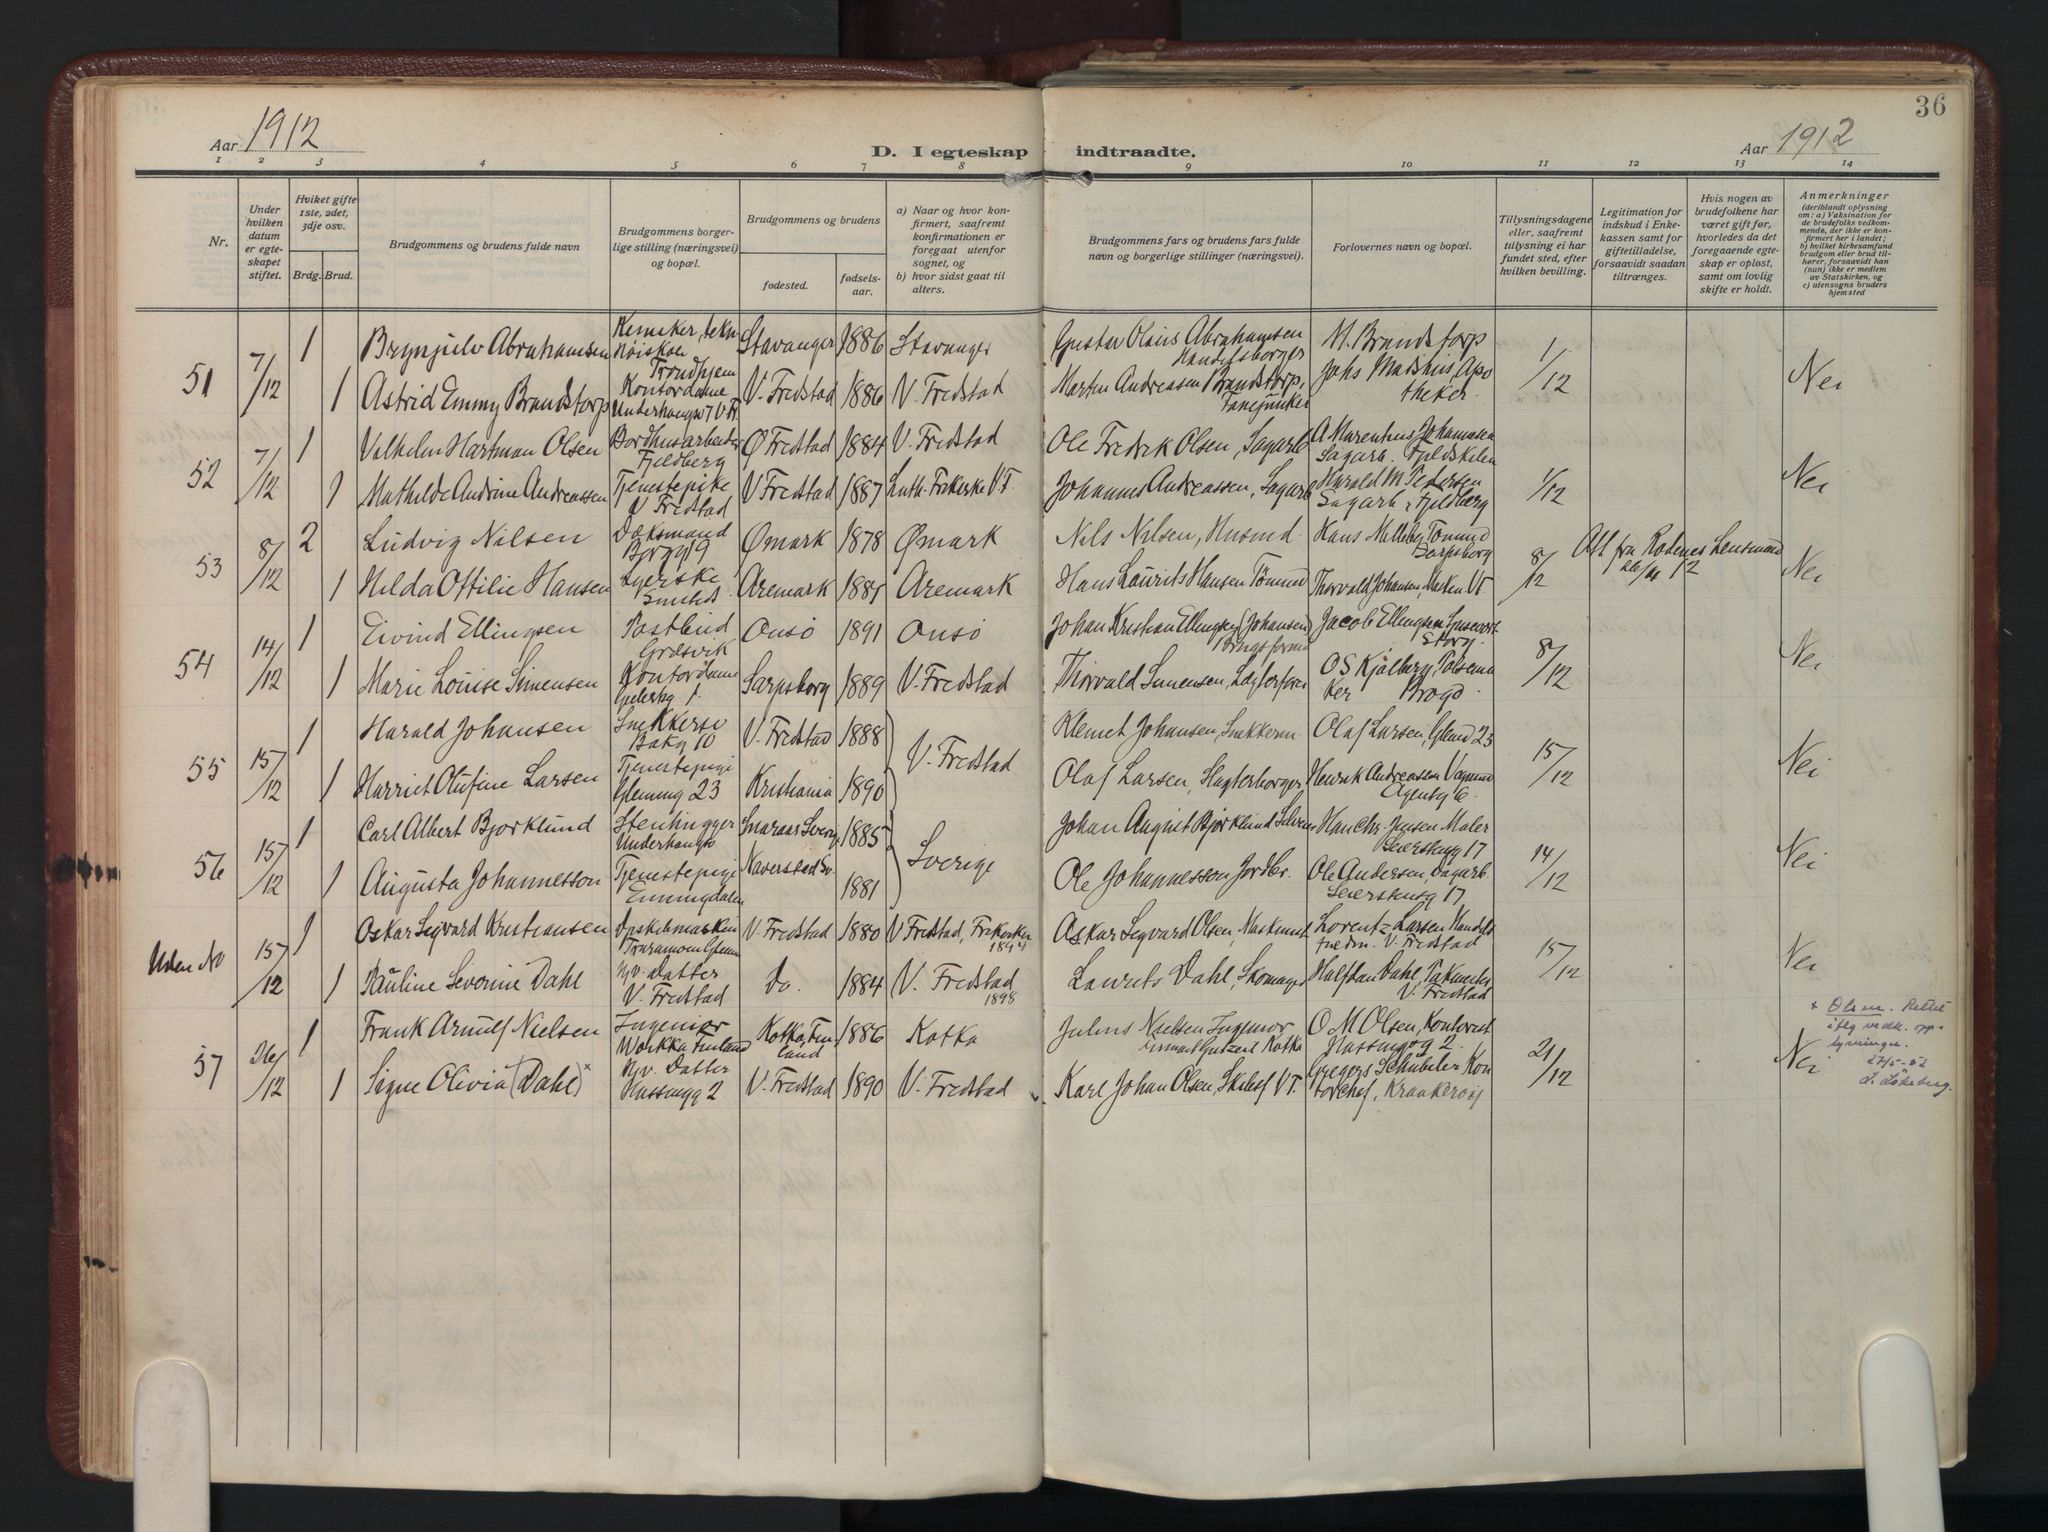 36
Aar 1912
D. I egteskap indtraadte.
Aar 1912
1 2 3 4 5 6 7 8 9 10 11 12 13 14
Nr.
Under hvilken datum er egteskapet stiftet.
Hviket gifte 1ste, 2det, 3dje osv.
Brdg. Brud.
Brudgommens og brudens fulde navn
Brudgommens borgerlige stilling (næringsvei) og bopæl.
Brudgommens og brudens
fødested.
fødselsaar.
a) Naar og hvor konfirmert, saafremt konfirmationen er foregaat utenfor sognet, og
b) hvor sidst gaat til alters.
Brudgommens fars og brudens fars fulde navn og borgerlige stillinger (næringsvei).
Forlovernes navn og bopæl.
Tillysningsdagene eller, saafremt tillysning ei har fundet sted, efter hvilken bevilling.
Legitimation for indskud i Enkekassen samt for giftetilladelse, forsaavidt saadan tiltrænges.
Hvis nogen av brudefolkene har været gift før, hvorledes da det foregaaende egteskap er opløst, samt om lovlig skifte er holdt.
Anmerkninger
(deriblandt oplysning om: a) Vaksination for de brudefolks vedkommende, der ikke er konfirmert her i landet; b) hvilket kirkesamfund brudgom eller brud tilhører, forsaavidt han (hun) ikke er medlem av Statskirken, og c) utensogns bruders hjemsted
51 7/12 1 Brynjulv Abrahamsen Kemiker, tekn Høiskole Trondhjem Stavanger 1886 Stavanger Gustav Olaus Abrahamsen Handelsborger M. Brandstorp 1/12 Nei
1 Astrid Emmy Brandstorp Kontordame V. Fredstad 1886 V. Fredstad Marten Andreassen Brandstorp, Fanejunker Johs Madshus, Apotheker
52 7/12 1 Valhelm Hartman Olsen Bordhusarbeider Fjeldberg Ø Fredstad 1884 V. Fredstad Ole Fredrk Olsen, Sagarb A Marenhius Johannesen Sagarb. Fjeldskilen 1/12 Nei
1 Mathilde Andrine Andreassen Tjenestepike V Fredstad V Fredstad 1887 Luth. Frikerke V F. Johannes Andreassen, Sagarb Harald M Pedersen Sagarb, Fjeldberg
53 8/12 2 Ludvig Nilsen Borgg 9 Ømark 1878 Ømark Nils Nilsen, Husmd. Hans Melleby Tømmd Sarpsborg 8/12 Att fra Rødenes Lensmand Nei
1 Hilda Ottilie Hansen Syerske Aremark 1881 Aremark Hans Laurits Hansen Tømmd Thorvald Johansen, V F.
54 14/12 1 Eivind Ellingsen Postbud Græsvik Onsø 1891 Onsø Johan Kristian Ellingsen (Johansen) Jacob Ellingsen 8/12 Nei
1 Marie Louise Simensen Kontordame Sarpsborg 1889 V. Fredstad Thorvald Simensen, O S Kjølberg, Pølsemaker
55 15/12 1 Harald Johansen Snekkersv Bakg 10 V. Fredstad 1888 V. Fredstad Klemet Johansen, Snekkerm Olaf Larsen, Glemg 23 15/12 Nei
1 Harriet Olufine Larsen Tjenestepige Glemmg 23 Kristiania 1890 Olaf Larsen, Slagterborger Henrik Andreassen Vognmd Egentg 6
56 15/12 1 Carl Albert Bjorklund Stenhugger 1885 Sverige Johan August Bjorklund Han Chr Jensen Maler Seiersbugg 17 14/12 Nei
1 Augusta Johannesson Tjenestepige Emmingdalen Naverstad Sv. 1881 Ole Johannesson Jordbr. Ole Andersen, Sagarb. Seiersbugg 17
Uden No 15/12 1 Oskar Sigvard Kristiansen V. Fredstad 1880 V Fredstad, Frikerke 1894 Oskar Sigvard Olsen, Maskinist Lorentz Larsen Handels V. Fredstad 15/12 Nei
1 Pauline Severine Dahl Hjv. Datter V. Fredstad Do. 1884 V. Fredstad 1898 Laurits Dahl, Skomager Halfdan Dahl, V. Fredstad
57 26/12 1 Frank Arnulf Nielsen Ingeniør Finland Kotka, Finland 1886 Kotka Julius Nielsen Ingeniør Kotka O M Olsen, Kontorist Hassingg 2. 21/12 Nei
1 Signe Olivia (Dahl)× Hjv. Datter Hassingg 2 V. Fredstad 1890 V. Fredstad Karl Johan Olsen, Skibsf V F. Gregers Schubeler Kontorchef, Krankerøy
× Olsen. Rettet iflg vedk. opplysninger. 27/5-52